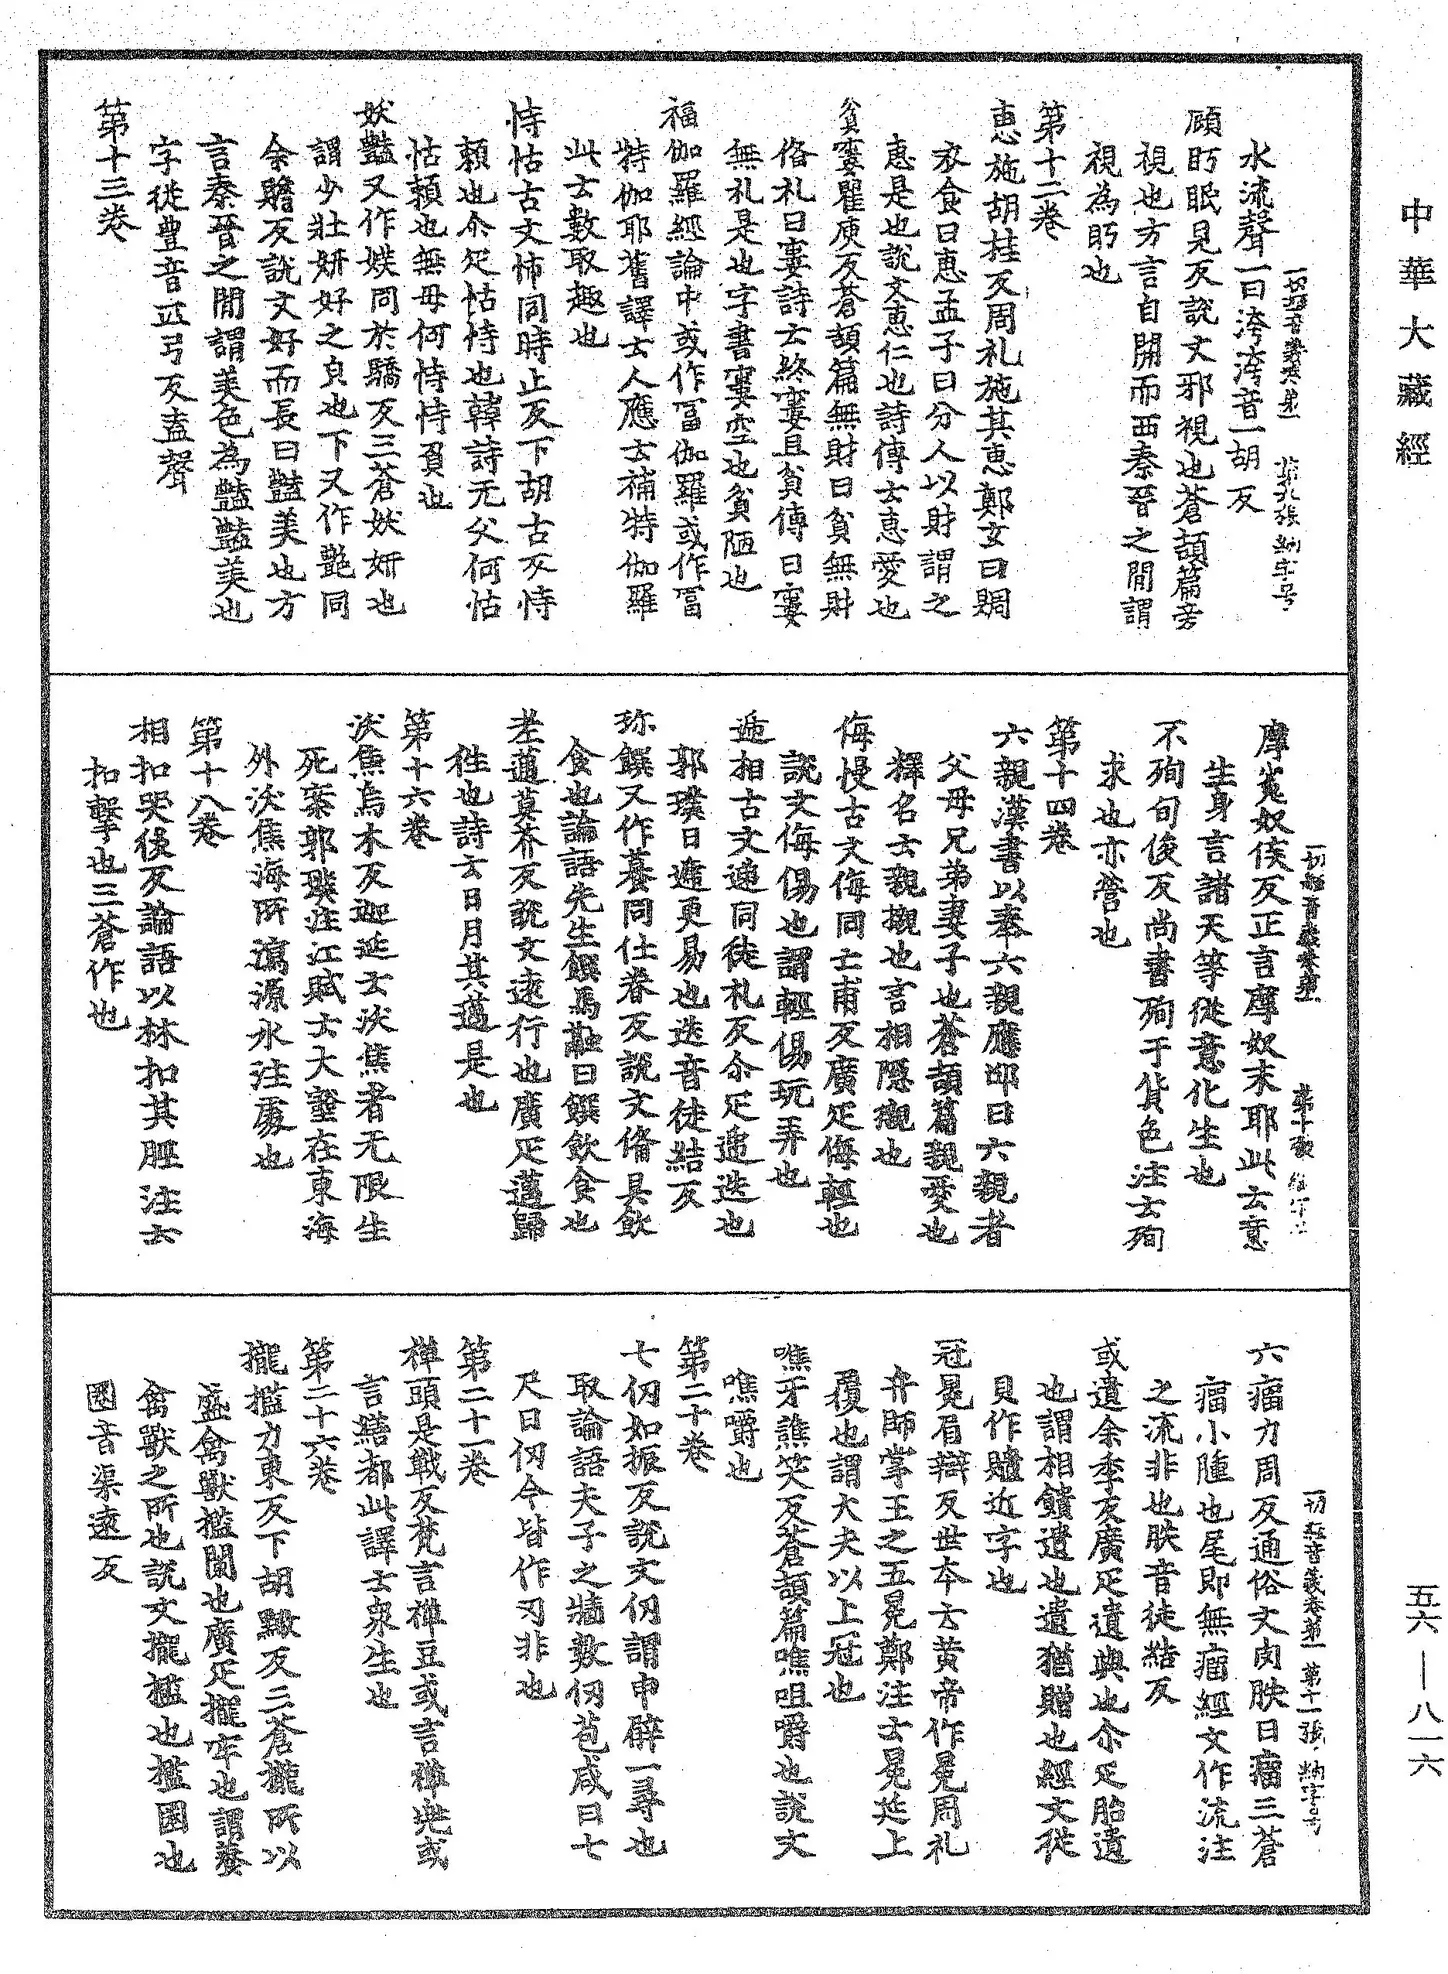 中華大藏經
水流聲一曰㳴㳴音一胡反
顧眄眠見反說文邪視也蒼頡篇旁
視也方言自開而西秦晉之間謂
視為眄也
第十二卷
惠施胡桂反周礼施其惠鄭玄曰賙
衣食曰惠孟子曰分人以財謂之
惠是也說文惠仁也詩傳云惠愛也
貧寠瞿庾反蒼頡篇無財曰貧無財
俻礼曰寠詩云終寠且貧傳曰寠
無礼是也字書寠空也貧陋也
福伽羅經論中或作冨伽羅或作冨
特伽耶舊譯云人應云補特伽羅
此云數取趣也
恃怙古文怖同時止反下胡古反恃
賴也尒疋怙恃也韓詩无父何怙
怙賴也無母何恃恃負也
妖豔又作媄同於驕反三蒼妖妍也
謂少壯妍好之皃也下又作艷同
余贍反說文好而長曰豔美也方
言秦晉之間謂美色為豔豔美也
字從豊音㱏弓反盍聲
第十三卷
摩㝹奴侯反正言摩奴末耶此云意
生身言諸天等從意化生也
不殉旬俊反尚書殉于貨色注云殉
求也亦營也
第十四卷
六親漢書以奉六親應邵曰六親者
父母兄弟妻子也蒼頡篇親愛也
釋名云親櫬也言相隱櫬也
侮慢古文侮同亡甫反廣疋侮輕也
說文侮傷也謂輕傷玩弄也
遞相古文递同徒礼反尒疋遞迭也
郭璞曰遞更易也迭音徒結反
珎饌又作籑同仕眷反說文俻具飲
食也論語先生饌馬融曰饌飲食也
差邁莫芥反說文遠行也廣疋邁歸
徃也詩云日月其邁是也
第十六卷
沃焦烏木反迦延云沃焦者无限生
死案郭璞注江賦云大壑在東海
外沃焦海所瀉源水注處也
第十八卷
相扣哭後反論語以杖扣其脛注云
扣擊也三蒼作也
六瘤力周反通俗文肉胅曰瘤三蒼
瘤小腫也尾即無瘤經文作流注
之流非也胅音徒結反
或遺余季反廣疋遺與也尒疋胎遺
也謂相饋遺也遺猶贈也經文從
貝作䞇近字也
冠冕眉辯反世本云黄帝作冕周礼
弁師掌王之五冕鄭注云冕延上
覆也謂大夫以上冠也
噍牙譙笑反蒼頡篇噍咀嚼也說文
噍嚼也
第二十卷
七仞如振反說文仞謂申臂一尋也
取論語夫子之牆數仞苞咸曰七
尺曰仞今皆作刃非也
第二十一卷
禪頭是戰反梵言禪豆或言禪兠或
言繕都此譯云衆生也
第二十六卷
櫳檻力東反下胡黤反三蒼櫳所以
盛禽獸檻閑也廣疋櫳牢也謂養
禽獸之所也說文櫳檻也檻圈也
圈音渠遠反
五六—八一六